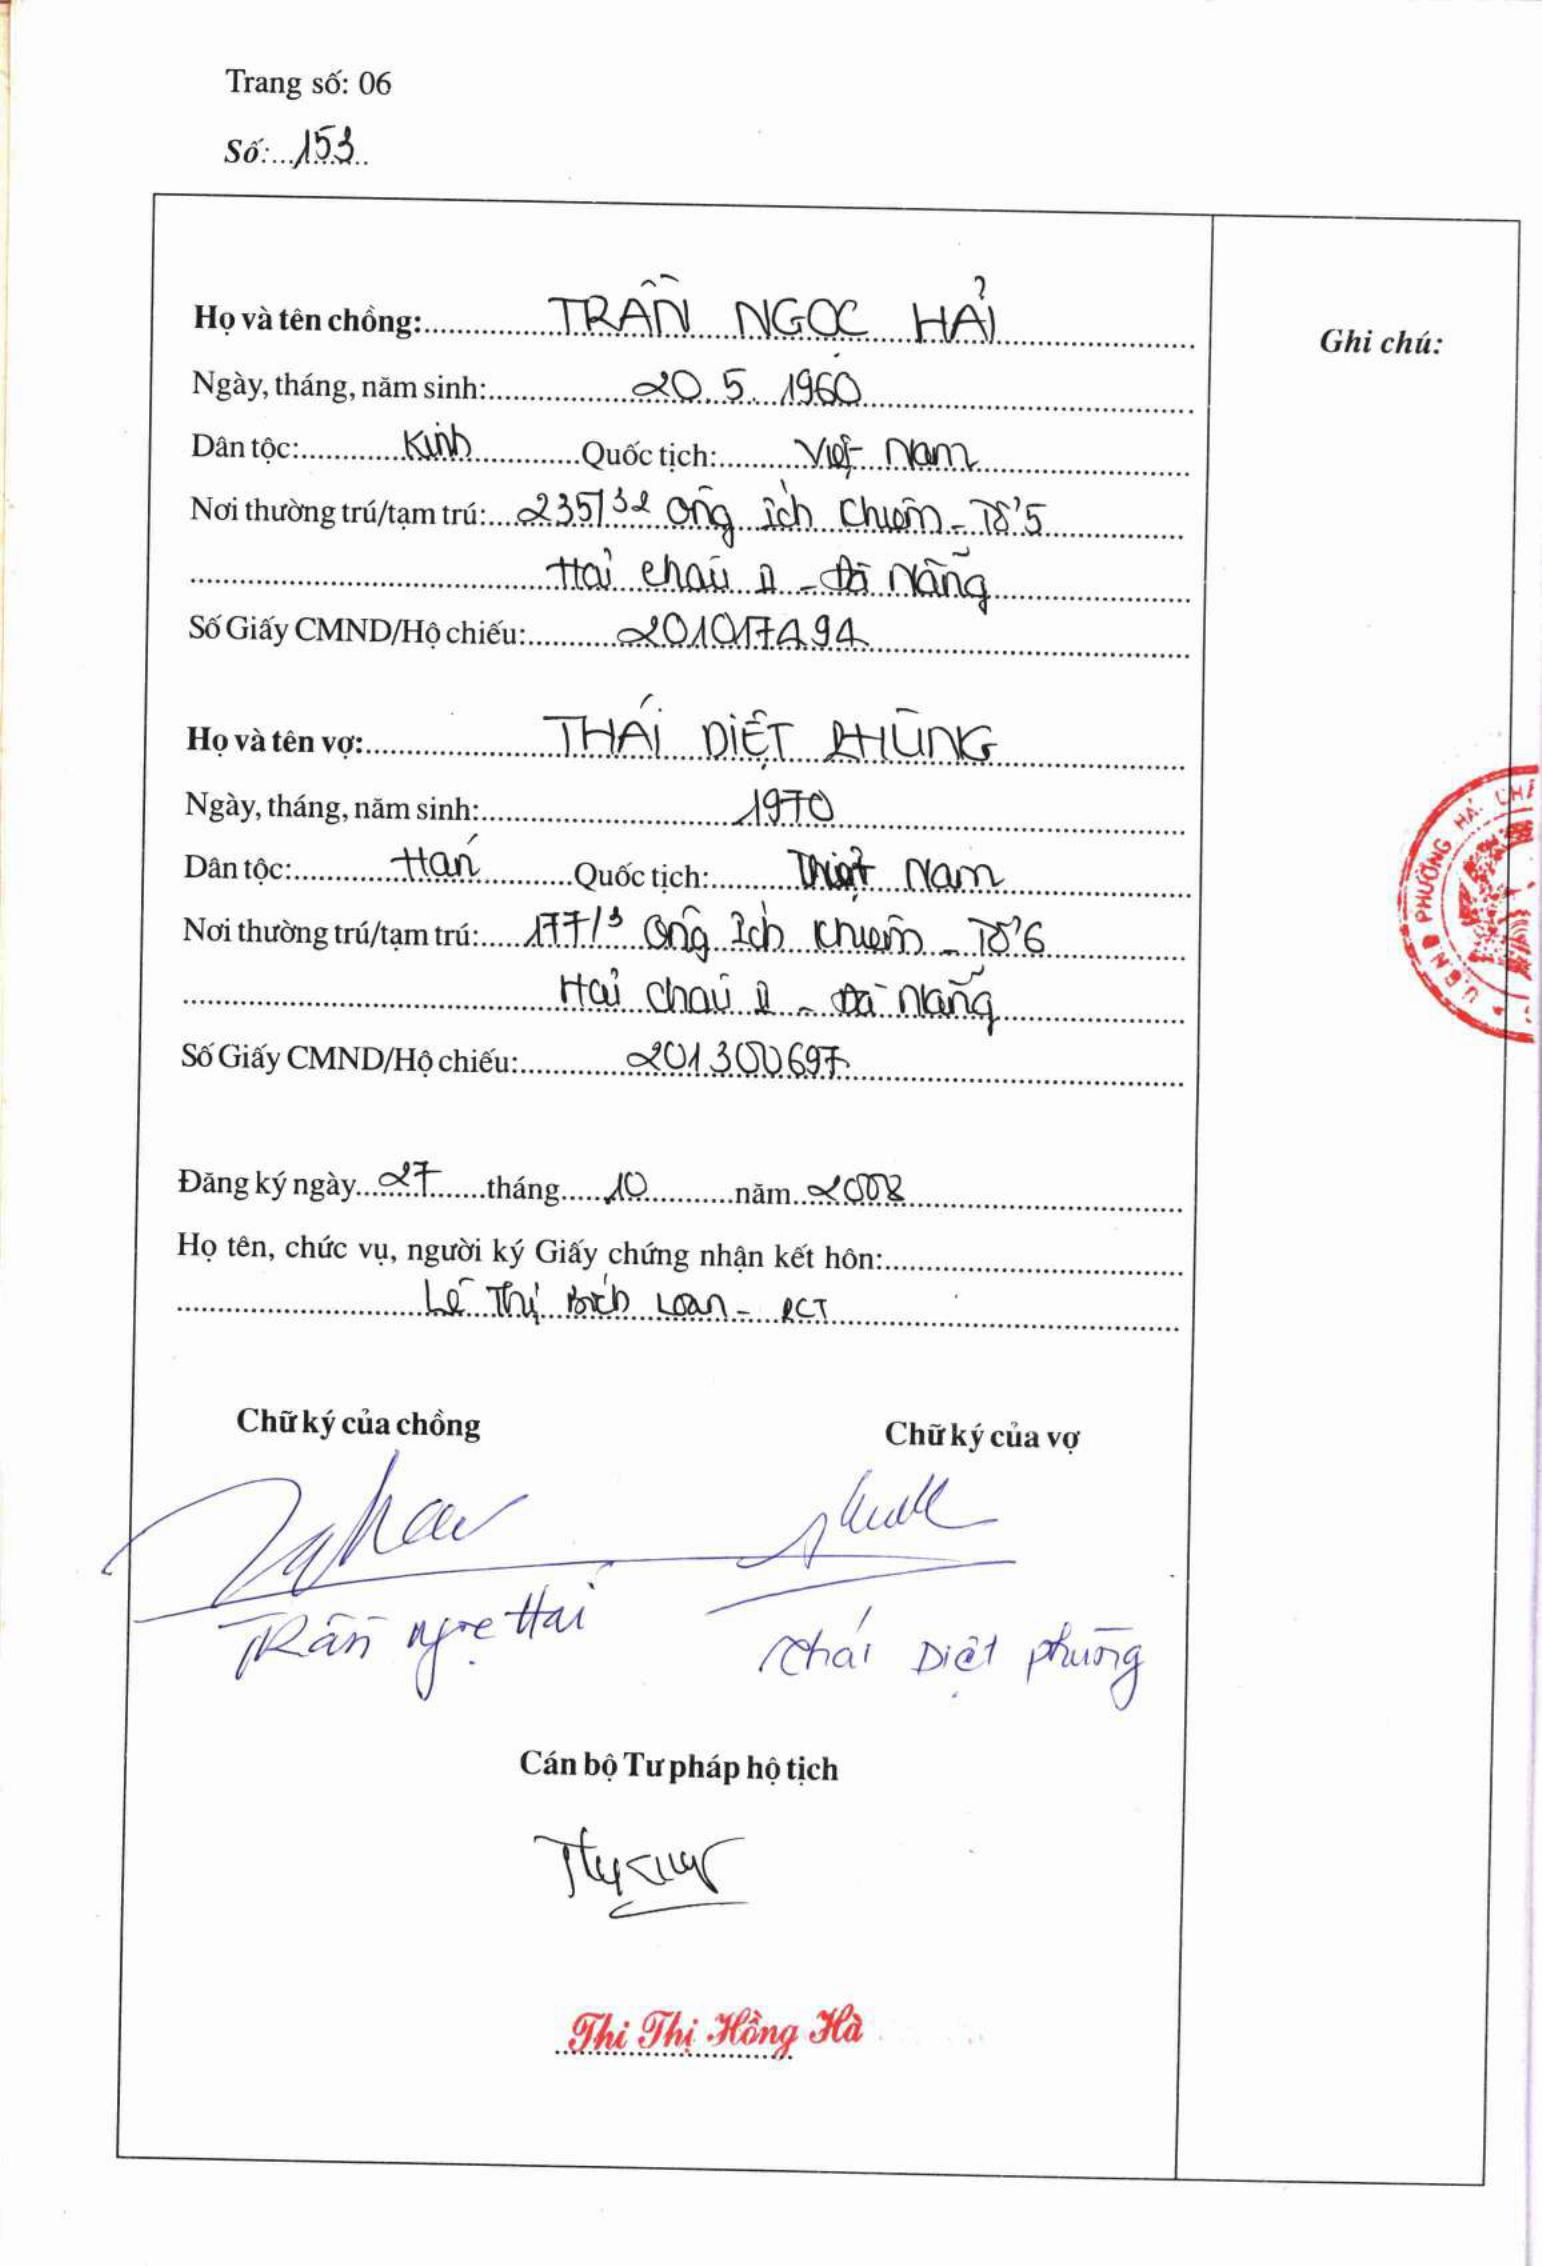 Trang số: 06
Số: 153
Họ và tên chồng: TRẦN NGỌC HẢI
Ghi chú:
Ngày, tháng, năm sinh: 20.5.1960
Dân tộc: Kinh Quốc tịch: Việt Nam
Nơi thường trú/tạm trú: 235/32 Ông Ích Khiêm - Tổ 5
Hải Châu II - Đà Nẵng
Số Giấy CMND/Hộ chiếu: 201017494
Họ và tên vợ: THÁI DIỆT PHÙNG
Ngày, tháng, năm sinh: 1970
Dân tộc: Hán Quốc tịch: Việt Nam
Nơi thường trú/tạm trú: 177/3 Ông Ích Khiêm - Tổ 6
Hải Châu II - Đà Nẵng
Số Giấy CMND/Hộ chiếu: 201300697
U.B.N.D PHƯỜNG HẢI
Đăng ký ngày 27 tháng 10 năm 2008
Họ tên, chức vụ, người ký Giấy chứng nhận kết hôn:
Lê Thị Bích Loan - PCT
Chữ ký của chồng Chữ ký của vợ
Trần Ngọc Hải Thái Diệt Phùng
Cán bộ Tư pháp hộ tịch
Thi Thị Hồng Hà